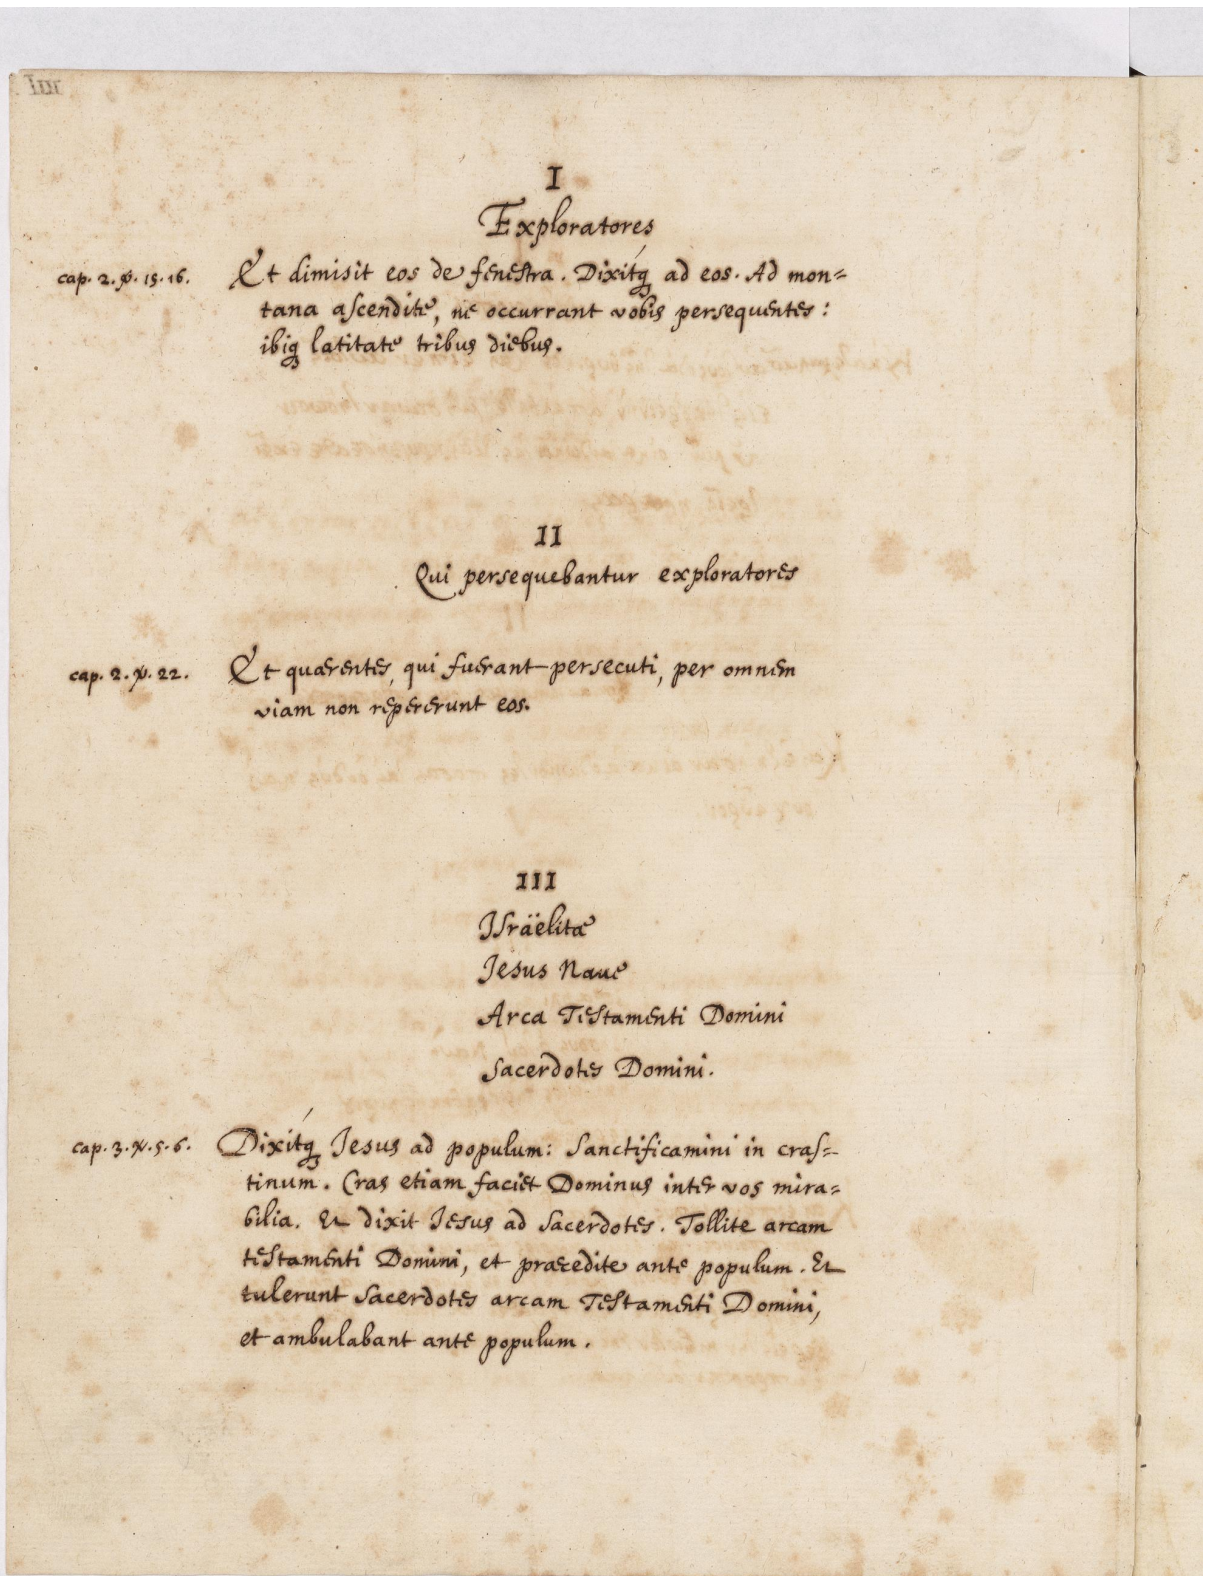 I
Exploratores
cap. 2. ꝟ. 15. 16. Et dimisit eos de fenestra. Dixítq; ad eos. Ad mon=
tana ascendite, ne occurrant vobis persequentes:
ibiq; latitate tribus diebus.
II
Qui persequebantur exploratores
cap. 2. ꝟ. 22. Et quærentes, qui fuerant persecuti, per omnem
viam non repererunt eos.
III
Israëlitæ
Jesus Naue
Arca Testamenti Domini
Sacerdotes Domini.
cap. 3. ꝟ. 5. 6. Dixítq; Jesus ad populum: Sanctificamini in cras=
tinum. Cras etiam faciet Dominus inter vos mira=
bilia. Et dixit Jesus ad Sacerdotes. Tollite arcam
testamenti Domini, et præcedite ante populum. Et
tulerunt Sacerdotes arcam Testamenti Domini,
et ambulabant ante populum.